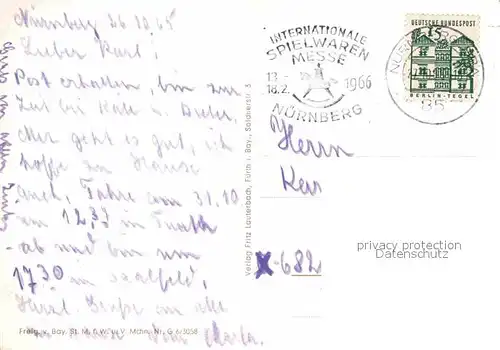 Nürnberg 26.10.65
Lieber Karl!
Post erhalten, bin zur
Zeit bei Kate u. Dieter.
Mir geht es gut, ich
hoffe zu Hause
auch. Fahre am 31.10
um 12,37 in Fürth
ab und bin um
1730 in Saalfeld.
Herzl. Grüße an alle
Freig. v. Bay. St. M. f. W. u. V. Mchn. Nr. G 6/3058
Verlag Fritz Lauterbach, Fürth i. Bay., Salzherstr. 5
INTERNATIONALE
SPIELWAREN
MESSE
13.-
18.2. 1966
NÜRNBERG
DEUTSCHE BUNDESPOST
15
BERLIN-TEGEL
Herrn
X-682
privacy protection
Datenschutz